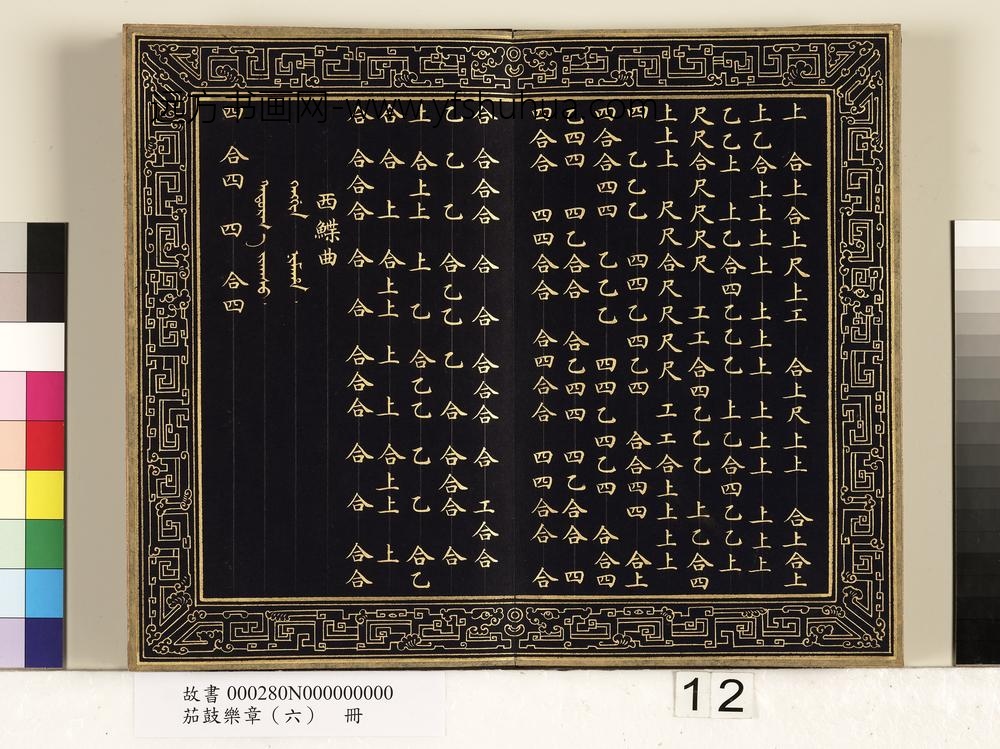 上 合上合上尺上工 合上尺上上 合上合上
上乙合上上上上 上上上 上上上 上上上
乙乙上 上乙合四乙乙乙 上乙合四乙乙上
尺尺合尺尺尺尺 工工合四乙乙乙 上乙合四
上上上 尺尺合尺尺尺尺 工工合上上上上
四 乙乙乙 四四乙四乙四 合合四四 合上
四合合四四 乙乙乙 四四乙四乙四 合合四
四四 四乙合合 合乙四四 四乙合合 四
四合合 四四合合 合四合合 四四合合 合
合 合合合 合 合 合合合 合 工合合
乙 乙 乙 合乙乙 乙 合 合合合 合
上 合上上 上 乙 合乙乙 乙 乙 合乙
合 合 上 合上上 上 上 合上上 上
合 合合合 合 合 合合合 合 合 合合
西鰈曲
四 合四 四 合四
方书画网-www.yfshuhua.com
故書 000280N000000000
茄鼓樂章（六） 冊
12